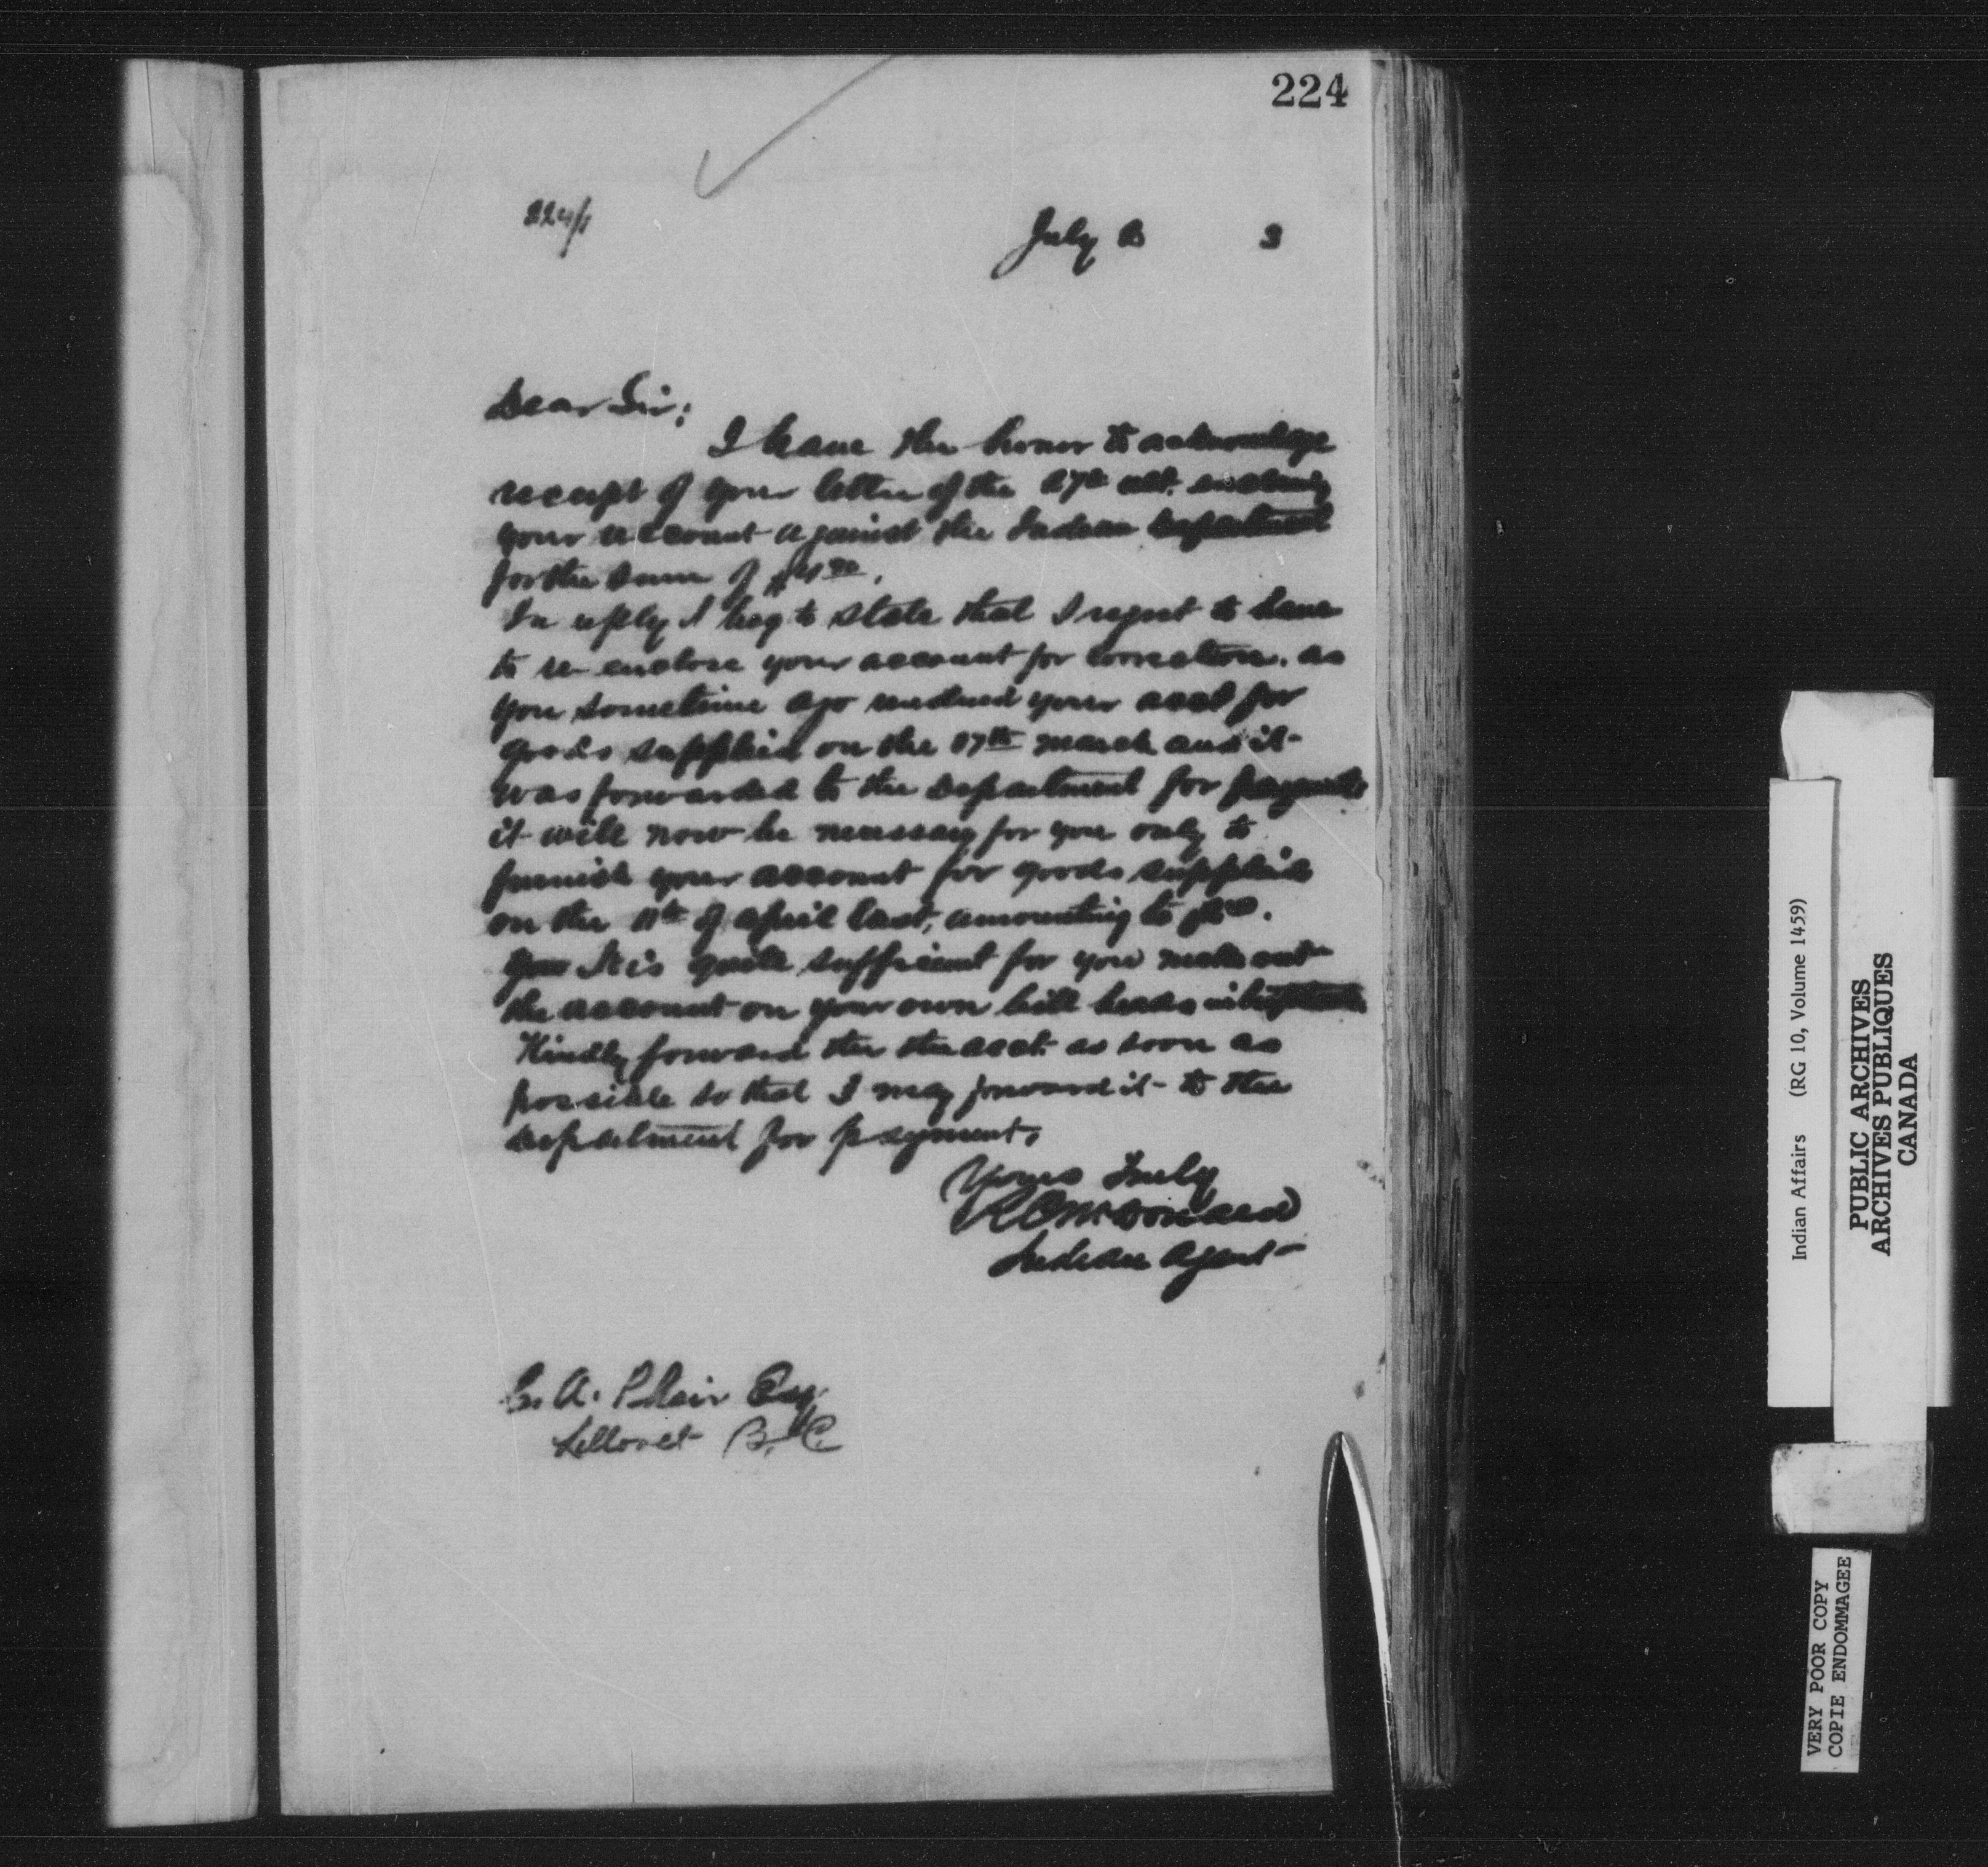 224
224/1
July 3
Dear Sir:
I have the honor to acknowledge
receipt of your letter of the 27th ult. enclosing
your account against the Indian Department
for the sum of
In reply I beg to state that I regret to have
to re-enclose your account for correction. as
you sometime ago rendered your acct for
goods supplied on the 17th March and it
was forwarded to the Department for payment
it will now be necessary for you only to
furnish your account for goods supplied
on the 11th of April last, amounting to
It is quite sufficient for you make out
the account on your own bill heads
Kindly forward the the acct. as soon as
possible so that I may forward it to the
department for payment,
Yours Truly
Indian Agent
A. Esq.
Lillooet B.C.
Indian Affairs (RG 10, Volume 1459)
PUBLIC ARCHIVES
ARCHIVES PUBLIQUES
CANADA
VERY POOR COPY
COPIE ENDOMMAGEE